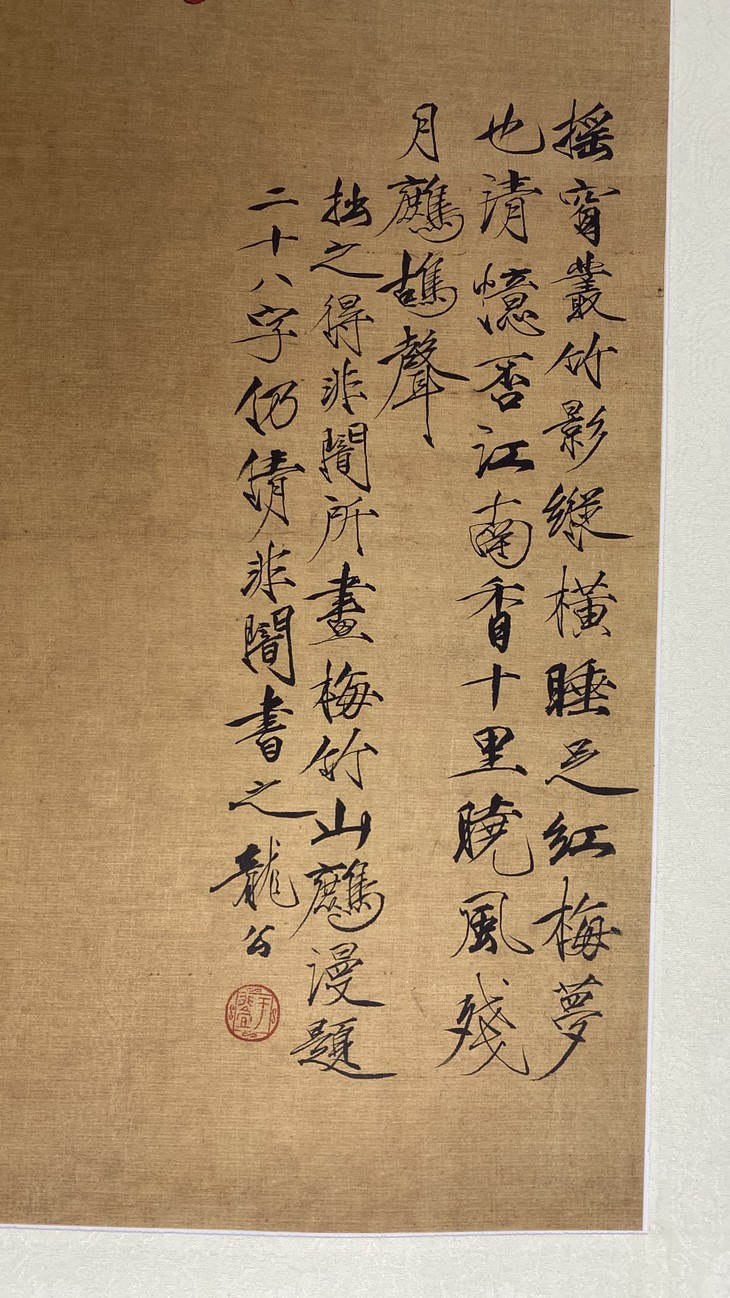 搖窗叢竹影縱橫睡足紅梅夢
也清憶否江南香十里曉風殘
月鷓鴣聲
拙之得非闇所畫梅竹山鷓漫題
二十八字仍倩非闇書之龍公